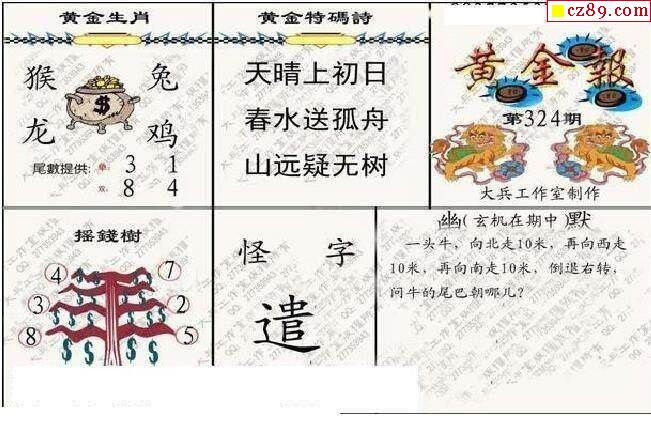 cz89.com
黄金生肖
猴 兔
龙 鸡
尾數提供: 单: 3 1
双: 8 4
黄金特碼詩
天晴上初日
春水送孤舟
山远疑无树
黄金報
第324期
大兵工作室制作
摇錢樹
4 7
3 2
8 5
怪 字
遣
幽(玄机在期中)默
一头牛，向北走10米，再向西走
10米，再向南走10米，倒退右转，
问牛的尾巴朝哪儿?